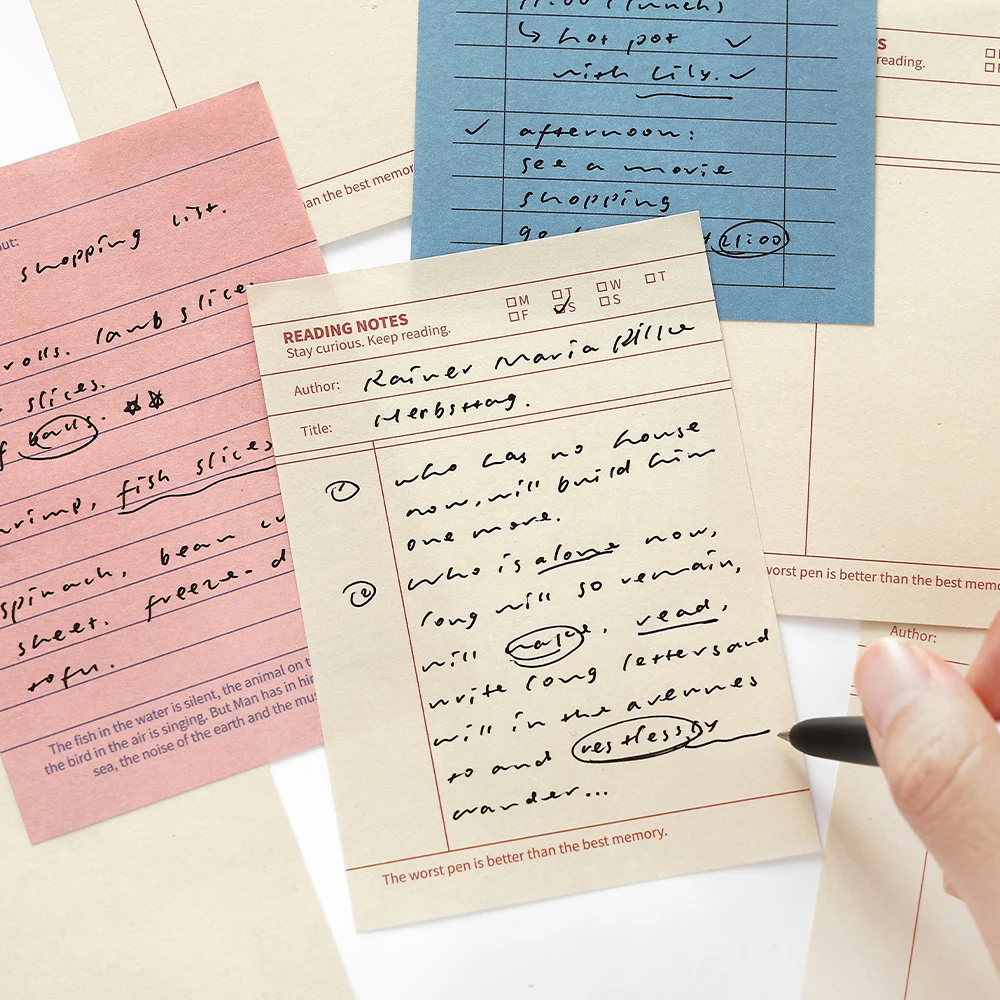 11:00 (lunch)
↳ hot pot ✓
with Lily. ✓
✓ afternoon:
see a movie
shopping
21:00
S
reading.
an the best memor
out:
shopping list.
rolls. lamb slice
slices.
f balls. ☆☆
hrimp, fish slices
spinach, bean cu
sheet. freeze-d
tofu.
The fish in the water is silent, the animal on t
the bird in the air is singing. But Man has in hi
sea, the noise of the earth and the mus
READING NOTES
Stay curious. Keep reading.
M T W T
F S S
Author: Rainer Maria Rilke
Title: Herbsttag.
① who has no house
now, will build him
one more.
② who is alone now,
long will so remain,
will wake, read,
write long letters and
will in the avenues
to and restlessly
wander...
The worst pen is better than the best memory.
worst pen is better than the best memo
Author: